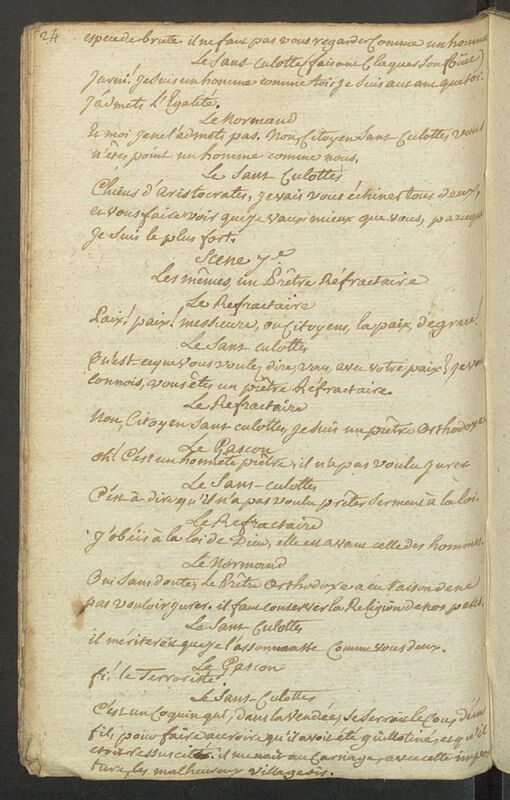 24
espece de brute. il ne faut pas vous regarder Comme un homme
Le Sans-Culotte (faisant Claquer Son foüet)
Jarni! Je suis un homme comme toi, je suis autant que toi.
J'admets L'Egalité.
Le Normand
Et moi je ne l'admets pas. Non, Citoyen Sans-Culottes, vous
n'êtes point un homme comme nous.
Le Sans-Culottes
Chiens d'aristocrates, je vais vous échiner tous deux,
et vous faire voir que je vaux mieux que vous, parceque
Je suis le plus fort.
Scene 7e
Les mêmes, un Prêtre Réfractaire
Le Refractaire
Paix! paix! messieurs, ou Citoyens, la paix, de grace!
Le Sans-culottes
Qu'est-ceque vous voulez dire, vous, avec votre paix? Je vous
connois, vous êtes un prêtre Réfractaire.
Le Refractaire
Non, Citoyen Sans-culottes, je suis un prêtre Orthodoxe
Le Gascon
oh! C'est un honnête prêtre, il n'a pas voulu jurer
Le Sans-culottes
C'est-à-dire qu'il n'a pas voulu prêter Serment à la loi.
Le Refractaire
J'obéis à la loi de Dieu, elle est avant celle des hommes.
Le Normand
Oui Sans doute, le Prêtre Orthodoxe a eu Raison de ne
pas vouloir jurer. il faut conserver la Religion de nos peres.
Le Sans-Culottes
il mériteroit que je l'assommasse Comme vous deux.
Le Gascon
fi! le Terroriste!
Le Sans-Culottes
C'est un Coquin qui, dans la vendée, Se Serroit le Cou d'un
fil, pour faire accroire qu'il avoit été guillotiné, et qu'il
etoit ressuscité. il menait au Carnage, avec cette impos-
ture, les malheureux villageois.